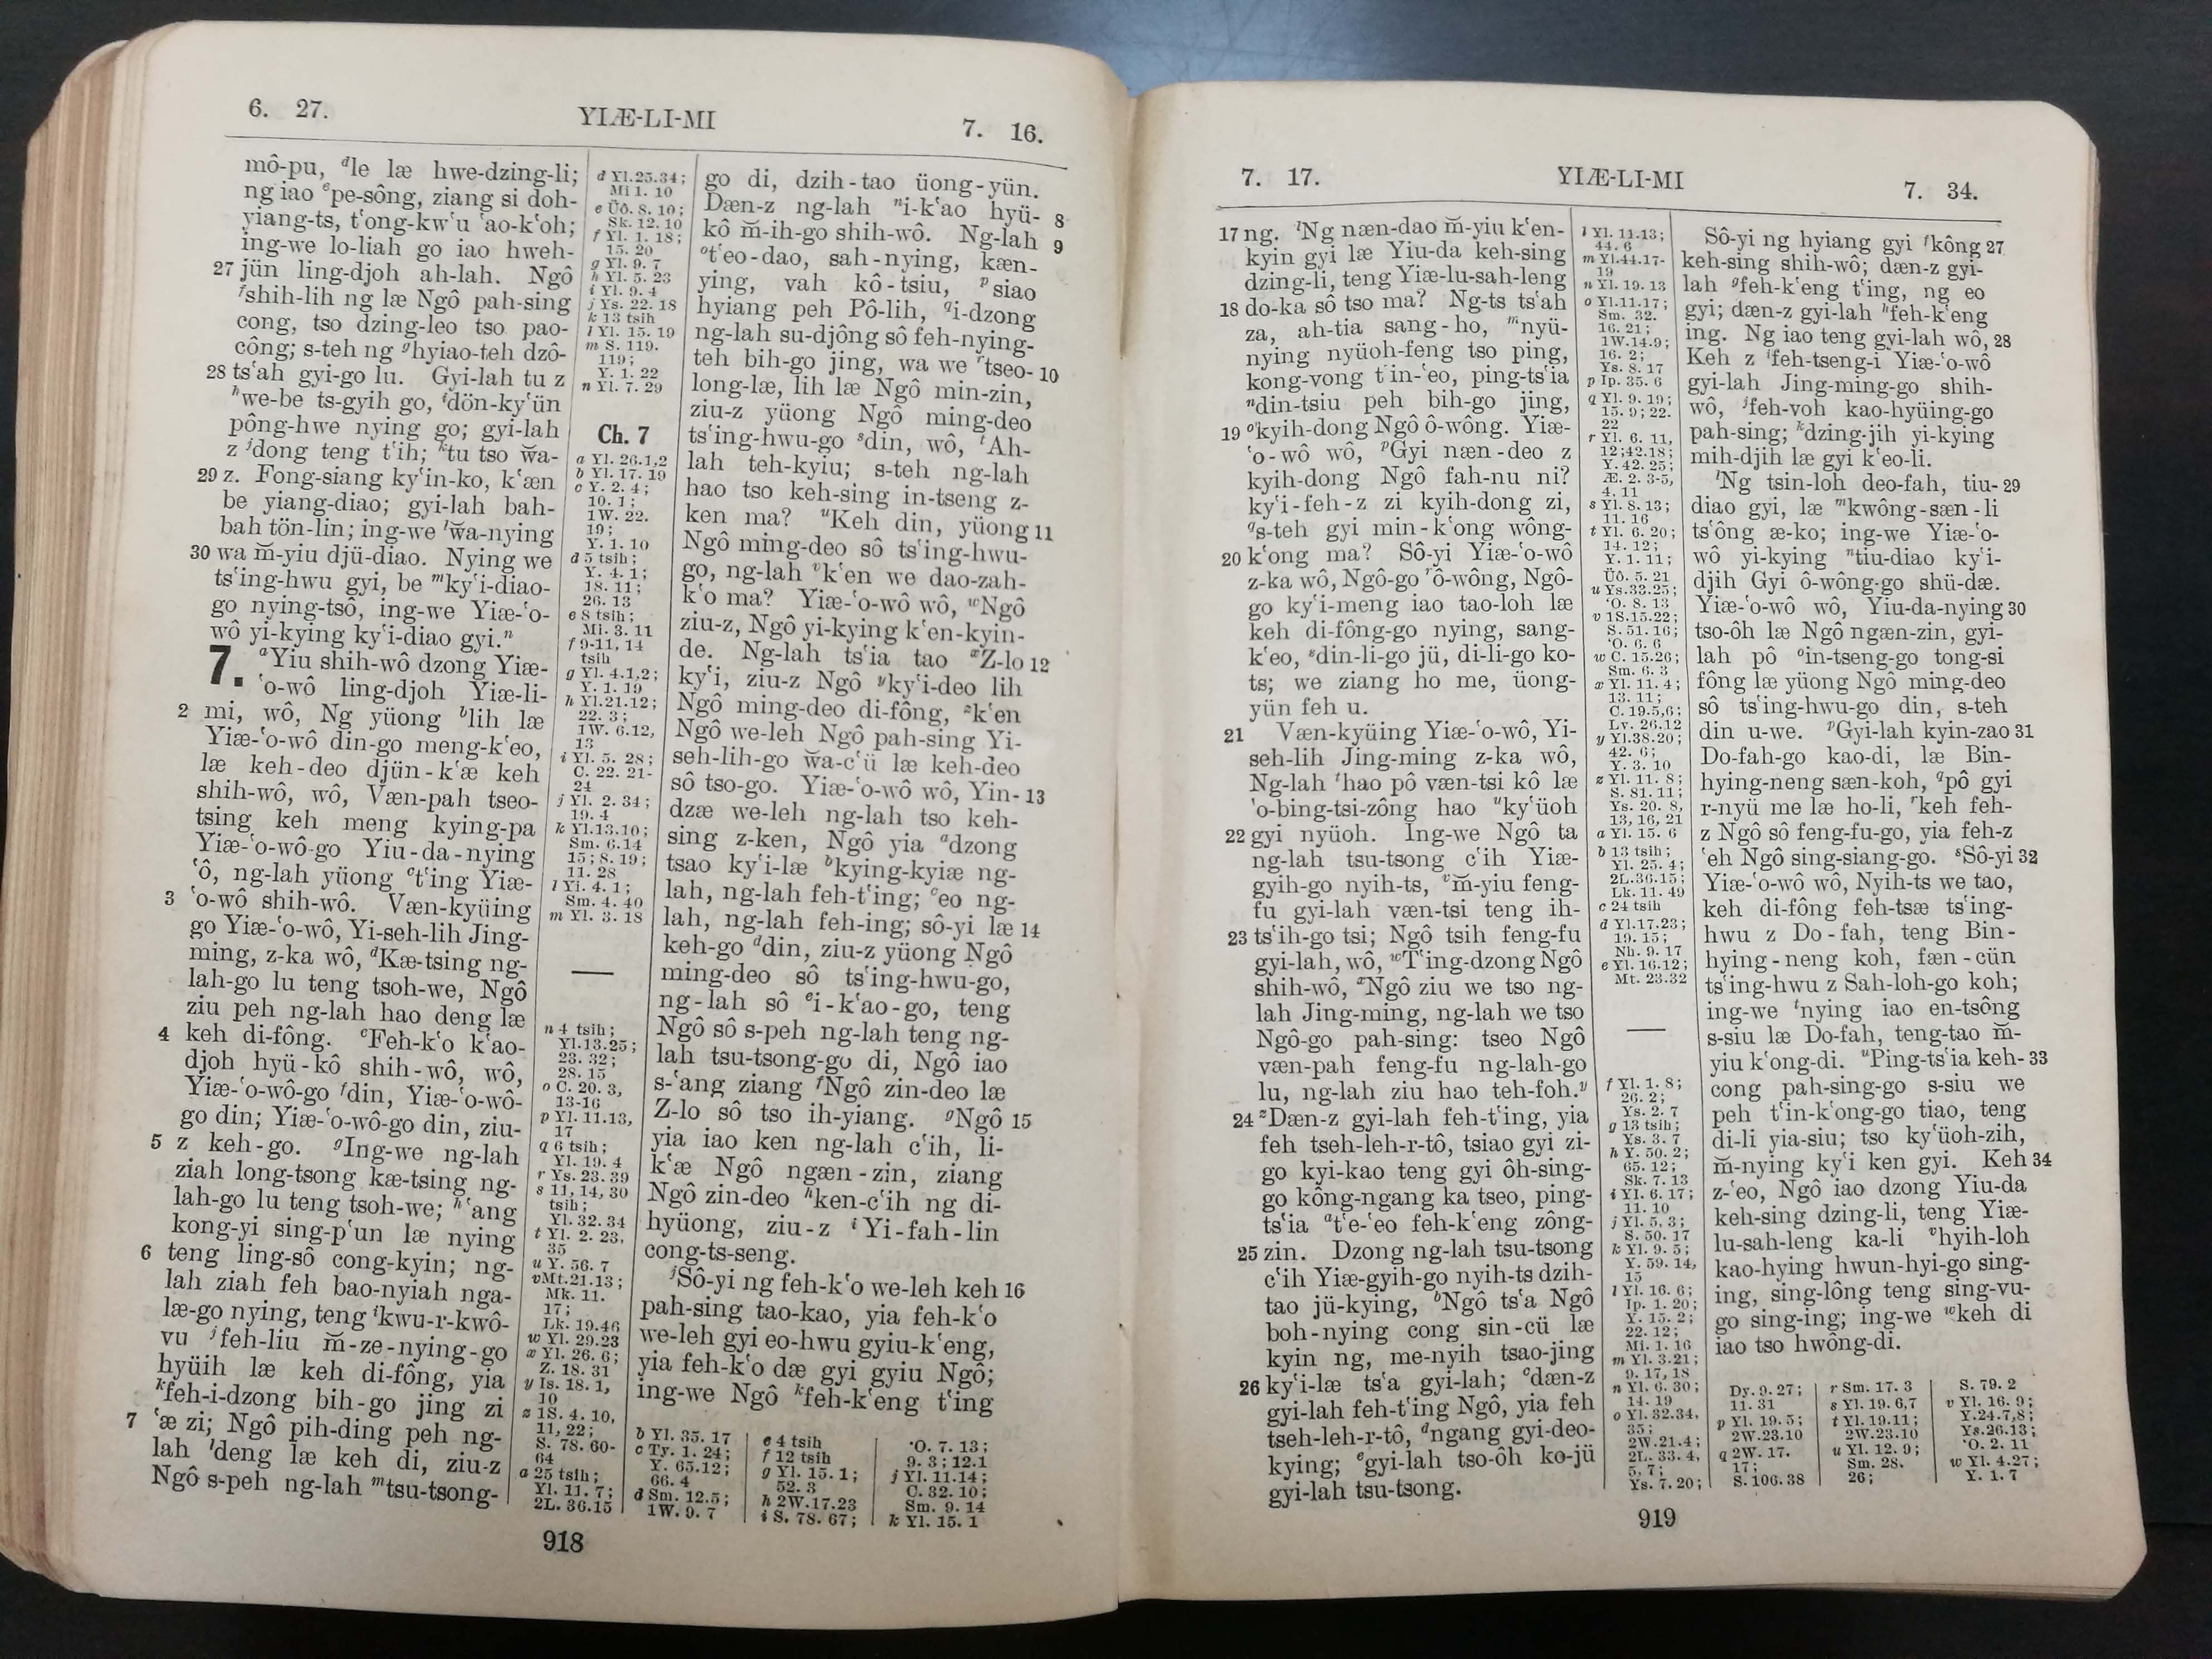 6. 27.
YIÆ-LI-MI
7. 16.
mô-pu, ᵈle læ hwe-dzing-li;
ng iao ᵉpe-sông, ziang si doh-
yiang-ts, tʻong-kwʻu ʻao-kʻoh;
ing-we lo-liah go iao hweh-
27 jün ling-djoh ah-lah. Ngô
ᶠshih-lih ng læ Ngô pah-sing
cong, tso dzing-leo tso pao-
công; s-teh ng ᵍhyiao-teh dzô-
28 tsʻah gyi-go lu. Gyi-lah tu z
ʰwe-be ts-gyih go, ⁱdön-kyʻün
pông-hwe nying go; gyi-lah
z ʲdong teng tʻih; ᵏtu tso w̆a-
29 z. Fong-siang kyʻin-ko, kʻæn
be yiang-diao; gyi-lah bah-
bah tön-lin; ing-we ˡw̆a-nying
30 wa m̆-yiu djü-diao. Nying we
tsʻing-hwu gyi, be ᵐkyʻi-diao-
go nying-tsô, ing-we Yiæ-ʻo-
wô yi-kying kyʻi-diao gyi.ⁿ
7. ᵃYiu shih-wô dzong Yiæ-
ʻo-wô ling-djoh Yiæ-li-
2 mi, wô, Ng yüong ᵇlih læ
Yiæ-ʻo-wô din-go meng-kʻeo,
læ keh-deo djün-kʻæ keh
shih-wô, wô, Væn-pah tseo-
tsing keh meng kying-pa
Yiæ-ʻo-wô-go Yiu-da-nying
ʻô, ng-lah yüong ᶜtʻing Yiæ-
3 ʻo-wô shih-wô. Væn-kyüing
go Yiæ-ʻo-wô, Yi-seh-lih Jing-
ming, z-ka wô, ᵈKæ-tsing ng-
lah-go lu teng tsoh-we, Ngô
ziu peh ng-lah hao deng læ
4 keh di-fông. ᵉFeh-kʻo kʻao-
djoh hyü-kô shih-wô, wô,
Yiæ-ʻo-wô-go ᶠdin, Yiæ-ʻo-wô-
go din; Yiæ-ʻo-wô-go din, ziu-
5 z keh-go. ᵍIng-we ng-lah
ziah long-tsong kæ-tsing ng-
lah-go lu teng tsoh-we; ʰʻang
kong-yi sing-pʻun læ nying
6 teng ling-sô cong-kyin; ng-
lah ziah feh bao-nyiah nga-
læ-go nying, teng ⁱkwu-r-kwô-
vu ʲfeh-liu m̆-ze-nying-go
hyüih læ keh di-fông, yia
ᵏfeh-i-dzong bih-go jing zi
7 ʻæ zi; Ngô pih-ding peh ng-
lah ˡdeng læ keh di, ziu-z
Ngô s-peh ng-lah ᵐtsu-tsong-
d Yl.25.34;
Mi 1. 10
e Üô. 8. 10;
Sk. 12. 10
f Yl. 1. 18;
15. 20
g Yl. 9. 7
h Yl. 5. 23
i Yl. 9. 4
j Ys. 22. 18
k 13 tsih
l Yl. 15. 19
m S. 119.
119;
Y. 1. 22
n Yl. 7. 29
Ch. 7
a Yl. 26.1,2
b Yl. 17. 19
c Y. 2. 4;
10. 1;
1W. 22.
19;
Y. 1. 10
d 5 tsih;
Y. 4. 1;
18. 11;
26. 13
e 8 tsih;
Mi. 3. 11
f 9-11, 14
tsih
g Yl. 4.1,2;
Y. 1. 19
h Yl.21.12;
22. 3;
1W. 6.12,
13
i Yl. 5. 28;
C. 22. 21-
24
j Yl. 2. 34;
19. 4
k Yl.13.10;
Sm. 6.14
15; 8. 19;
11. 28
l Yi. 4. 1;
Sm. 4. 40
m Yl. 3. 18
n 4 tsih;
Yl.13.25;
23. 32;
28. 15
o C. 20. 3,
13-16
p Yl. 11.13,
17
q 6 tsih;
Yl. 19. 4
r Ys. 23. 39
s 11, 14, 30
tsih;
Yl. 32. 34
t Yl. 2. 23,
35
u Y. 56. 7
v Mt.21.13;
Mk. 11.
17;
Lk. 19.46
w Yl. 29.23
x Yl. 26. 6;
Z. 18. 31
y Is. 18. 1,
10
z 1S. 4. 10,
11, 22;
S. 78. 60-
64
a 25 tsih;
Yl. 11. 7;
2L. 36.15
go di, dzih-tao üong-yün.
Dæn-z ng-lah ⁿi-kʻao hyü- 8
kô m̆-ih-go shih-wô. Ng-lah 9
ᵒtʻeo-dao, sah-nying, kæn-
ying, vah kô-tsiu, ᵖsiao
hyiang peh Pô-lih, ᑫi-dzong
ng-lah su-djông sô feh-nying-
teh bih-go jing, wa we ʳtseo- 10
long-læ, lih læ Ngô min-zin,
ziu-z yüong Ngô ming-deo
tsʻing-hwu-go ˢdin, wô, ᵗAh-
lah teh-kyiu; s-teh ng-lah
hao tso keh-sing in-tseng z-
ken ma? ᵘKeh din, yüong 11
Ngô ming-deo sô tsʻing-hwu-
go, ng-lah ᵛkʻen we dao-zah-
kʻo ma? Yiæ-ʻo-wô wô, ʷNgô
ziu-z, Ngô yi-kying kʻen-kyin-
de. Ng-lah tsʻia tao ˣZ-lo 12
kyʻi, ziu-z Ngô ʸkyʻi-deo lih
Ngô ming-deo di-fông, ᶻkʻen
Ngô we-leh Ngô pah-sing Yi-
seh-lih-go w̆a-cʻü læ keh-deo
sô tso-go. Yiæ-ʻo-wô wô, Yin- 13
dzæ we-leh ng-lah tso keh-
sing z-ken, Ngô yia ᵃdzong
tsao kyʻi-læ ᵇkying-kyiæ ng-
lah, ng-lah feh-tʻing; ᶜeo ng-
lah, ng-lah feh-ing; sô-yi læ 14
keh-go ᵈdin, ziu-z yüong Ngô
ming-deo sô tsʻing-hwu-go,
ng-lah sô ᵉi-kʻao-go, teng
Ngô sô s-peh ng-lah teng ng-
lah tsu-tsong-go di, Ngô iao
s-ʻang ziang ᶠNgô zin-deo læ
Z-lo sô tso ih-yiang. ᵍNgô 15
yia iao ken ng-lah cʻih, li-
kʻæ Ngô ngæn-zin, ziang
Ngô zin-deo ʰken-cʻih ng di-
hyüong, ziu-z ⁱYi-fah-lin
cong-ts-seng.
ʲSô-yi ng feh-kʻo we-leh keh 16
pah-sing tao-kao, yia feh-kʻo
we-leh gyi eo-hwu gyiu-kʻeng,
yia feh-kʻo dæ gyi gyiu Ngô;
ing-we Ngô ᵏfeh-kʻeng tʻing
b Yl. 35. 17
c Ty. 1. 24;
Y. 65.12;
66. 4
d Sm. 12.5;
1W. 9. 7
e 4 tsih
f 12 tsih
g Yl. 15. 1;
52. 3
h 2W.17.23
i S. 78. 67;
ʻO. 7. 13;
9. 3; 12.1
j Yl. 11.14;
C. 32. 10;
Sm. 9. 14
k Yl. 15. 1
918
7. 17.
YIÆ-LI-MI
7. 34.
17 ng. ˡNg næn-dao m̆-yiu kʻen-
kyin gyi læ Yiu-da keh-sing
dzing-li, teng Yiæ-lu-sah-leng
18 do-ka sô tso ma? Ng-ts tsʻah
za, ah-tia sang-ho, ᵐnyü-
nying nyüoh-feng tso ping,
kong-vong tʻin-ʻeo, ping-tsʻia
ⁿdin-tsiu peh bih-go jing,
19 ᵒkyih-dong Ngô ô-wông. Yiæ-
ʻo-wô wô, ᵖGyi næn-deo z
kyih-dong Ngô fah-nu ni?
kyʻi-feh-z zi kyih-dong zi,
ᑫs-teh gyi min-kʻong wông-
20 kʻong ma? Sô-yi Yiæ-ʻo-wô
z-ka wô, Ngô-go ʳô-wông, Ngô-
go kyʻi-meng iao tao-loh læ
keh di-fông-go nying, sang-
kʻeo, ˢdin-li-go jü, di-li-go ko-
ts; we ziang ho me, üong-
yün feh u.
21 Væn-kyüing Yiæ-ʻo-wô, Yi-
seh-lih Jing-ming z-ka wô,
Ng-lah ᵗhao pô væn-tsi kô læ
ʻo-bing-tsi-zông hao ᵘkyʻüoh
22 gyi nyüoh. Ing-we Ngô ta
ng-lah tsu-tsong cʻih Yiæ-
gyih-go nyih-ts, ᵛm̆-yiu feng-
fu gyi-lah væn-tsi teng ih-
23 tsʻih-go tsi; Ngô tsih feng-fu
gyi-lah, wô, ʷTʻing-dzong Ngô
shih-wô, ˣNgô ziu we tso ng-
lah Jing-ming, ng-lah we tso
Ngô-go pah-sing: tseo Ngô
væn-pah feng-fu ng-lah-go
lu, ng-lah ziu hao teh-foh.ʸ
24 ᶻDæn-z gyi-lah feh-tʻing, yia
feh tseh-leh-r-tô, tsiao gyi zi-
go kyi-kao teng gyi ôh-sing-
go kông-ngang ka tseo, ping-
tsʻia ᵃtʻe-ʻeo feh-kʻeng zông-
25 zin. Dzong ng-lah tsu-tsong
cʻih Yiæ-gyih-go nyih-ts dzih-
tao jü-kying, ᵇNgô tsʻa Ngô
boh-nying cong sin-cü læ
kyin ng, me-nyih tsao-jing
26 kyʻi-læ tsʻa gyi-lah; ᶜdæn-z
gyi-lah feh-tʻing Ngô, yia feh
tseh-leh-r-tô, ᵈngang gyi-deo-
kying; ᵉgyi-lah tso-ôh ko-jü
gyi-lah tsu-tsong.
l Yl. 11.13;
44. 6
m Yl.44.17-
19
n Yl. 19. 13
o Yl.11.17;
Sm. 32.
16. 21;
1W.14.9;
16. 2;
Ys. 8. 17
p Ip. 35. 6
q Yl. 9. 19;
15. 9; 22.
22
r Yl. 6. 11,
12;42.18;
Y. 42. 25;
Æ. 2. 3-5,
4. 11
s Yl. 8. 13;
11. 16
t Yl. 6. 20;
14. 12;
Y. 1. 11;
Üô. 5. 21
u Ys.33.25;
ʻO. 8. 13
v 1S.15.22;
S. 51. 16;
ʻO. 6. 6
w C. 15.26;
Sm. 6. 3
x Yl. 11. 4;
13. 11;
C. 19.5,6;
Lv. 26.12
y Yl.38.20;
42. 6;
Y. 3. 10
z Yl. 11. 8;
S. 81. 11;
Ys. 20. 8,
13, 16, 21
a Yl. 15. 6
b 13 tsih;
Yl. 25. 4;
2L.36.15;
Lk. 11. 49
c 24 tsih
d Yl.17.23;
19. 15;
Nh. 9. 17
e Yl. 16.12;
Mt. 23.32
f Yl. 1. 8;
26. 2;
Ys. 2. 7
g 13 tsih;
Ys. 3. 7
h Y. 50. 2;
65. 12;
Sk. 7. 13
i Yl. 6. 17;
11. 10
j Yl. 5. 3;
S. 50. 17
k Yl. 9. 5;
Y. 59. 14,
15
l Yl. 16. 6;
Ip. 1. 20;
Y. 15. 2;
22. 12;
Mi. 1. 16
m Yl. 3.21;
9. 17, 18
n Yl. 6. 30;
14. 19
o Yl. 32.34,
35;
2W.21.4;
2L. 33. 4,
5, 7;
Ys. 7. 20;
Sô-yi ng hyiang gyi ᶠkông 27
keh-sing shih-wô; dæn-z gyi-
lah ᵍfeh-kʻeng tʻing, ng eo
gyi; dæn-z gyi-lah ʰfeh-kʻeng
ing. Ng iao teng gyi-lah wô, 28
Keh z ⁱfeh-tseng-i Yiæ-ʻo-wô
gyi-lah Jing-ming-go shih-
wô, ʲfeh-voh kao-hyüing-go
pah-sing; ᵏdzing-jih yi-kying
mih-djih læ gyi kʻeo-li.
ˡNg tsin-loh deo-fah, tiu- 29
diao gyi, læ ᵐkwông-sæn-li
tsʻông æ-ko; ing-we Yiæ-ʻo-
wô yi-kying ⁿtiu-diao kyʻi-
djih Gyi ô-wông-go shü-dæ.
Yiæ-ʻo-wô wô, Yiu-da-nying 30
tso-ôh læ Ngô ngæn-zin, gyi-
lah pô ᵒin-tseng-go tong-si
fông læ yüong Ngô ming-deo
sô tsʻing-hwu-go din, s-teh
din u-we. ᵖGyi-lah kyin-zao 31
Do-fah-go kao-di, læ Bin-
hying-neng sæn-koh, ᑫpô gyi
r-nyü me læ ho-li, ʳkeh feh-
z Ngô sô feng-fu-go, yia feh-z
ʻeh Ngô sing-siang-go. ˢSô-yi 32
Yiæ-ʻo-wô wô, Nyih-ts we tao,
keh di-fông feh-tsæ tsʻing-
hwu z Do-fah, teng Bin-
hying-neng koh, fæn-cün
tsʻing-hwu z Sah-loh-go koh;
ing-we ᵗnying iao en-tsông
s-siu læ Do-fah, teng-tao m̆-
yiu kʻong-di. ᵘPing-tsʻia keh- 33
cong pah-sing-go s-siu we
peh tʻin-kʻong-go tiao, teng
di-li yia-siu; tso kyʻüoh-zih,
m̆-nying kyʻi ken gyi. Keh 34
z-ʻeo, Ngô iao dzong Yiu-da
keh-sing dzing-li, teng Yiæ-
lu-sah-leng ka-li ᵛhyih-loh
kao-hying hwun-hyi-go sing-
ing, sing-lông teng sing-vu-
go sing-ing; ing-we ʷkeh di
iao tso hwông-di.
Dy. 9. 27;
11. 31
p Yl. 19. 5;
2W.23.10
q 2W. 17.
17;
S. 106.38
r Sm. 17. 3
s Yl. 19. 6,7
t Yl. 19.11;
2W.23.10
u Yl. 12. 9;
Sm. 28.
26;
S. 79. 2
v Yl. 16. 9;
Y.24.7,8;
Ys.26.13;
ʻO. 2. 11
w Yl. 4.27;
Y. 1. 7
919